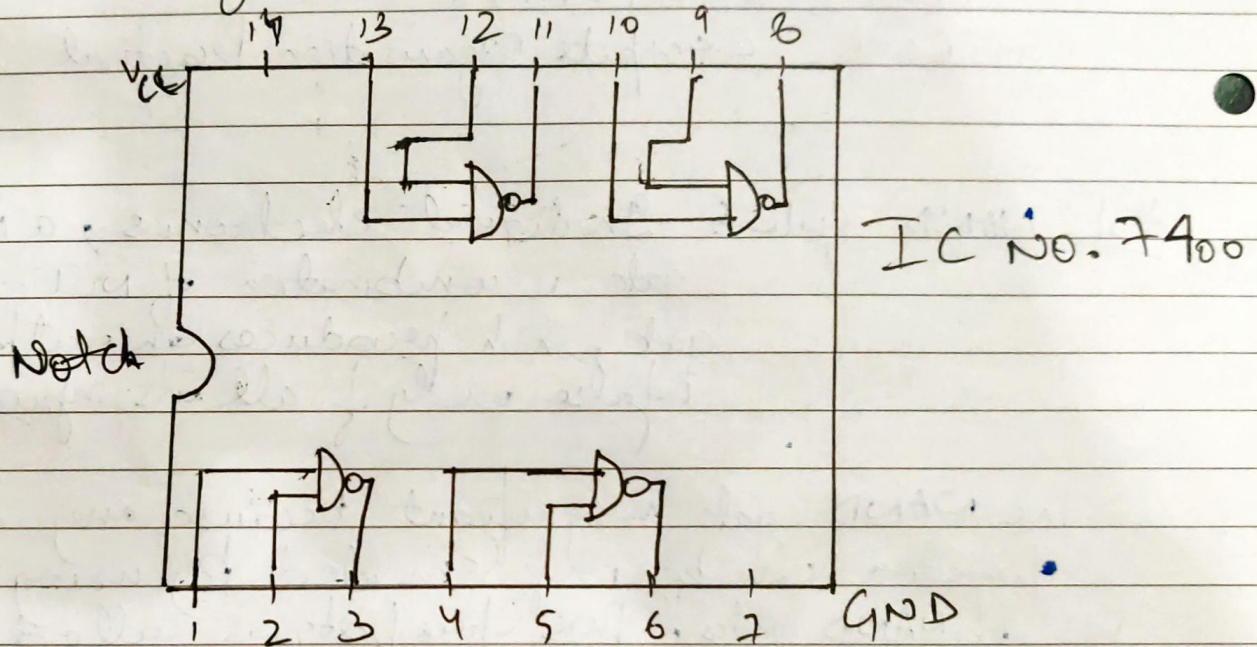 14 13 12 11 10 9 8
Vcc
IC NO. 7400
Notch
1 2 3 4 5 6 7 GND